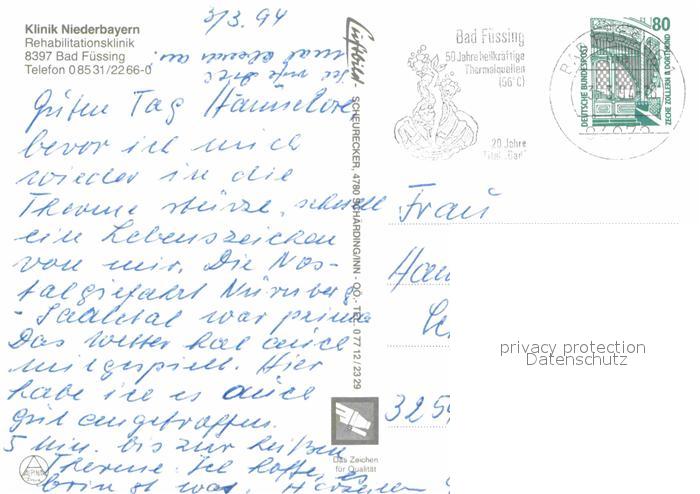 3/3.94
Klinik Niederbayern
Rehabilitationsklinik
8397 Bad Füssing
Telefon 0 85 31/22 66-0
Guten Tag Hannelore
bevor ich mich
wieder in die
Therme stürze, schnell
ein Lebenszeichen
von mir. Die Nos-
talgiefahrt Nürnberg
- Saaletal war prima
Das Wetter hat auch
mitgespielt. Hier
habe ich es auch
gut angetroffen.
5 Min. bis zur heißen
Therme. Ich hoffe, es
bringt was. Herzlichen
Luftbild - SCHEURECKER, 4780 SCHÄRDING/INN - OÖ. - TEL. 0 77 12 / 23 29
Das Zeichen
für Qualität
Bad Füssing
50 Jahre heilkräftige
Thermalquellen
(56°C)
20 Jahre
Titel „Bad“
80
DEUTSCHE BUNDESPOST
ZECHE ZOLLERN II, DORTMUND
Frau
Han
325
privacy protection
Datenschutz